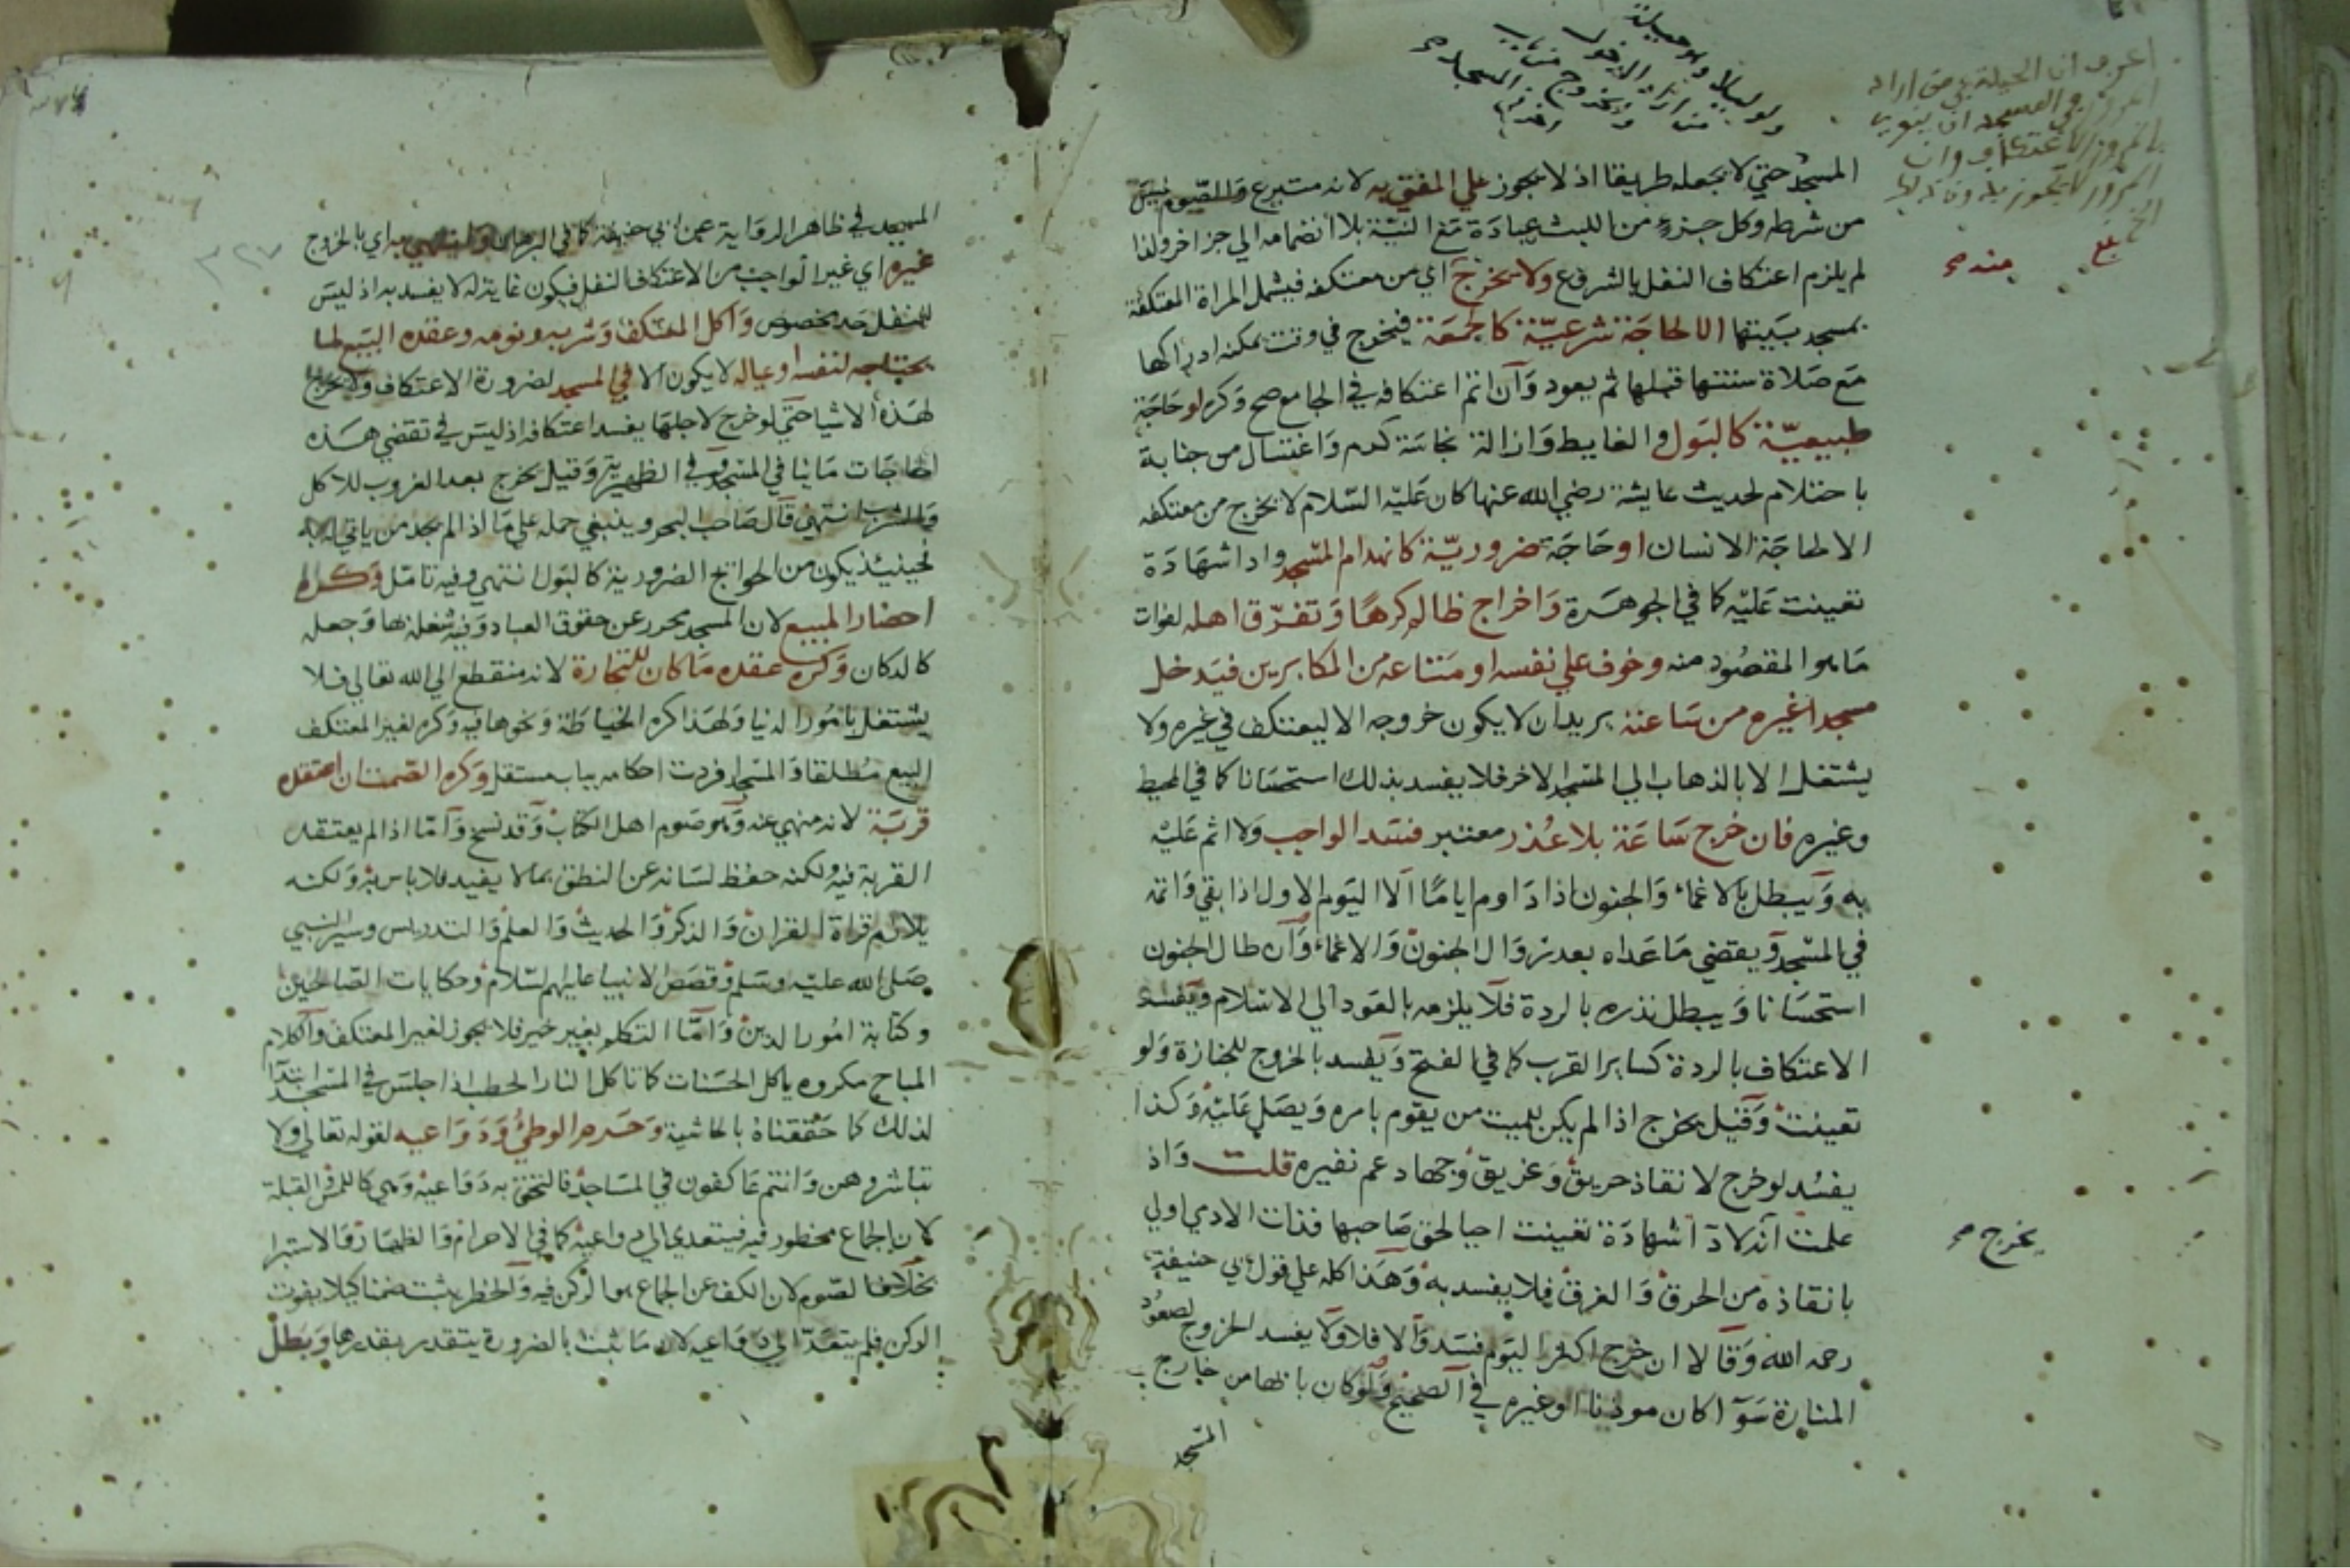 المسجد حتي لا يجعله طريقا اذ لا يجوز علي المفتي به لانه متبرع وللصوم ليس
من شرطه وكل جزء من اللبث عبادة مع النية بلا انضمامه الي جزا خر ولذا
لم يلزم اعتكاف النفل بالشروع ولا يخرج اي من معتكفه فيشمل المراة المعتكفة
بمسجد بيتها الا لحاجة شرعية كالجمعة فيخرج في وقت يمكنه ادراكها
مع صلاة سنتها قبلها ثم يعود وان اتم اعتكافه في الجامع صح وكره او حاجة
طبيعية كالبول والغايط وازالة نجاسة كدم واغتسال من جنابة
باحتلام لحديث عايشة رضي الله عنها كان عليه السلام لا يخرج من معتكفه
الا لحاجة الانسان او حاجة ضرورية كانهدام المسجد واداشهادة
تعينت عليه كما في الجوهرة واخراج ظالم كرها وتفرق اهله لفوات
ما هو المقصود منه وخوف علي نفسه او متاعه من المكابرين فيدخل
مسجدا غيره من ساعته يريد ان لا يكون خروجه الا ليعتكف في غيره ولا
يشتغل الا بالذهاب الي المسجد الاخر فلا يفسد بذلك استحسانا كما في المحيط
وغيره فان خرج ساعة بلا عذر معتبر فسد الواجب ولا اثم عليه
به ويبطل بالاغماء والجنون اذا داوم اياما الا اليوم الاول اذا بقي واتمه
في المسجد ويقضي ما عداه بعد زوال الجنون والاغماء وان طال الجنون
استحسانا ويبطل نذره بالردة فلا يلزمه بالعود الي الاسلام ويفسد
الاعتكاف بالردة كساير القرب كما في الفتح ويفسد بالخروج للجنازة ولو
تعينت وقيل يخرج اذا لم يكن للميت من يقوم بامره ويصلي عليه وكذا
يفسد لو خرج لانقاذ حريق وغريق وجهاد عم نفيره قلت واذ
علمت ان لاداشهادة تعينت احيا لحق صاحبها فذات الادمي اولي
بانقاذه من الحرق والغرق فلا يفسد به وهذا كله علي قول ابي حنيفة
رحمه الله وقالا ان خرج اكثر اليوم فسد والا فلا ولا يفسد الخروج لصعود
المنارة سوا كان موذنا او غيره في الصحيح ولو كان بابها من خارج
المسجد
منه
بلغ
يخرج
المسجد في ظاهر الرواية عن ابي حنيفة كما في البرهان وينتهي به اي بالخروج
غيره اي غير الواجب من الاعتكاف النفل فيكون غاية له لا يفسد به اذ ليس
للنفل حد مخصوص واكل المعتكف وشربه ونومه وعقده البيع لما
يحتاجه لنفسه او عياله لا يكون الا في المسجد لضرورة الاعتكاف ولا يخرج
لهذه الاشيا حتي لو خرج لاجلها يفسد اعتكافه اذ ليس في تقضي هذه
الحاجات ماينافي المسجد وفي الظهيرية وقيل يخرج بعد الغروب للاكل
والشرب انتهي قال صاحب البحر وينبغي حمله علي ما اذا لم يجد من ياتي له به
فحينئذ يكون من الحوائج الضرورية كالبول انتهي وفيه تامل وكره
احضار المبيع لان المسجد محرر عن حقوق العباد وفيه شغله بها وجعله
كالدكان وكره عقده ما كان للتجارة لانه منقطع الي الله تعالي فلا
يشتغل بامور الدنيا ولهذا كره الخياطة ونحوها فيه وكره لغير المعتكف
البيع مطلقا والمسجد افردت احكامه بباب مستقل وكره الصمت ان اعتقده
قربة لانه منهي عنه وهو صوم اهل الكتاب وقد نسخ واما اذا لم يعتقده
القربة فيه ولكنه حفظ لسانه عن النطق بما لا يفيد فلا باس به ولكنه
يلازم قراة القران والذكر والحديث والعلم والتدريس وسير النبي
صلي الله عليه وسلم وقصص الانبيا عليهم السلام وحكايات الصالحين
وكتابة امور الدين واما التكلم بغير خير فلا يجوز لغير المعتكف والكلام
المباح مكروه ياكل الحسنات كما تاكل النار الحطب اذا جلس في المسجد ابتدا
لذلك كما حققناه بالحاشية وحرم الوطئ ودواعيه لقوله تعالي ولا
تباشروهن وانتم عاكفون في المساجد فالتحق به دواعيه وهي كاللمس والقبلة
لان الجماع محظور فيه فيتعدي الي دواعيه كما في الاحرام والظهار والاستبرا
بخلاف الصوم لان الكف عن الجماع هو الركن فيه والحظر يثبت ضمنا كيلا يفوت
الركن فلم يتعد الي دواعيه لان ما ثبت بالضرورة يتقدر بقدرها وبطل